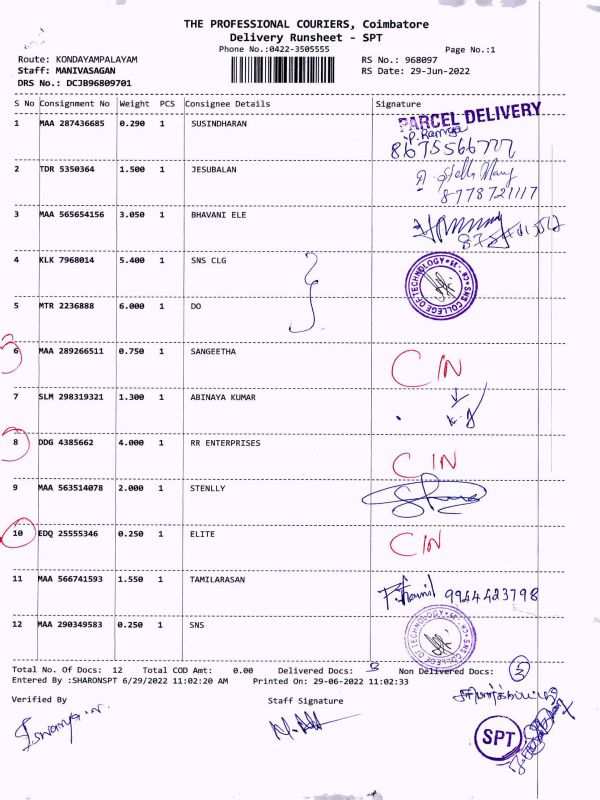 THE PROFESSIONAL COURIERS, Coimbatore
Delivery Runsheet - SPT
Phone No.:0422-3505555
Page No.:1
Route: KONDAYAMPALAYAM
RS No.: 968097
Staff: MANIVASAGAN
RS Date: 29-Jun-2022
DRS No.: DCJB96809701
S No Consignment No Weight PCS Consignee Details Signature
1 MAA 287436685 0.290 1 SUSINDHARAN
PARCEL DELIVERY
P. Ramya
2 TDR 5350364 1.500 1 JESUBALAN
8778721117
3 MAA 565654156 3.050 1 BHAVANI ELE
4 KLK 7968014 5.400 1 SNS CLG
SNS COLLEGE OF TECHNOLOGY
5 MTR 2236888 6.000 1 DO
6 MAA 289266511 0.750 1 SANGEETHA C/N
7 SLM 298319321 1.300 1 ABINAYA KUMAR
8 DDG 4385662 4.000 1 RR ENTERPRISES C/N
9 MAA 563514078 2.000 1 STENLLY
10 EDQ 25555346 0.250 1 ELITE C/N
11 MAA 566741593 1.550 1 TAMILARASAN 9944423798
12 MAA 290349583 0.250 1 SNS
Total No. Of Docs: 12 Total COD Amt: 0.00 Delivered Docs: Non Delivered Docs: 3
Entered By :SHARONSPT 6/29/2022 11:02:20 AM Printed On: 29-06-2022 11:02:33
Verified By Staff Signature
SPT